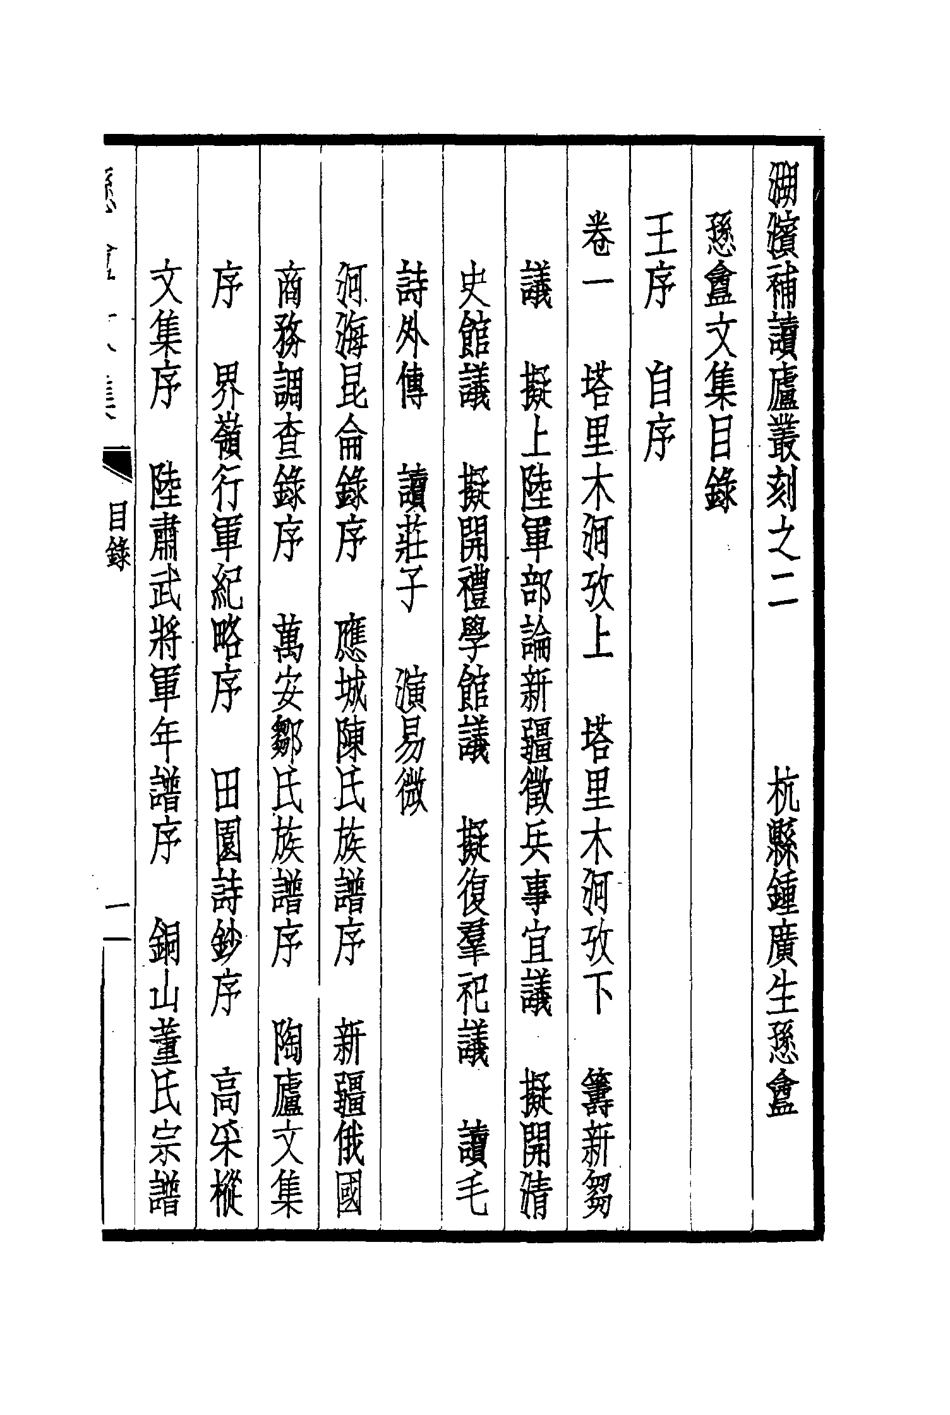 湖濱補讀廬叢刻之二　杭縣鍾廣生愻盦
愻盦文集目錄
王序　自序
卷一　塔里木河攷上　塔里木河攷下　籌新芻
議　擬上陸軍部論新疆徵兵事宜議　擬開清
史館議　擬開禮學館議　擬復羣祀議　讀毛
詩外傳　讀莊子　演易微
河海昆侖錄序　應城陳氏族譜序　新疆俄國
商務調查錄序　萬安鄒氏族譜序　陶廬文集
序　界嶺行軍紀略序　田園詩鈔序　高采樅
文集序　陸肅武將軍年譜序　銅山董氏宗譜
愻盦文集　目錄　一